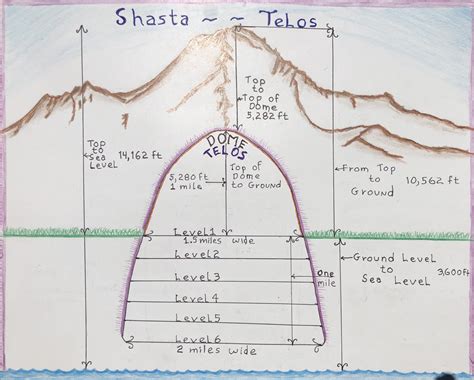 Shasta ~ ~ Telos
Top
to
Top of
Dome
5,282 ft
DOME
TELOS
Top
to
Sea
Level
14,162 ft
5,280 ft
1 mile
Top of
Dome
to Ground
From Top
to
Ground
10,562 ft
Level 1
1.5 miles wide
Level 2
Level 3
Level 4
Level 5
Level 6
2 miles wide
one
mile
Ground Level
to
Sea Level
3,600ft